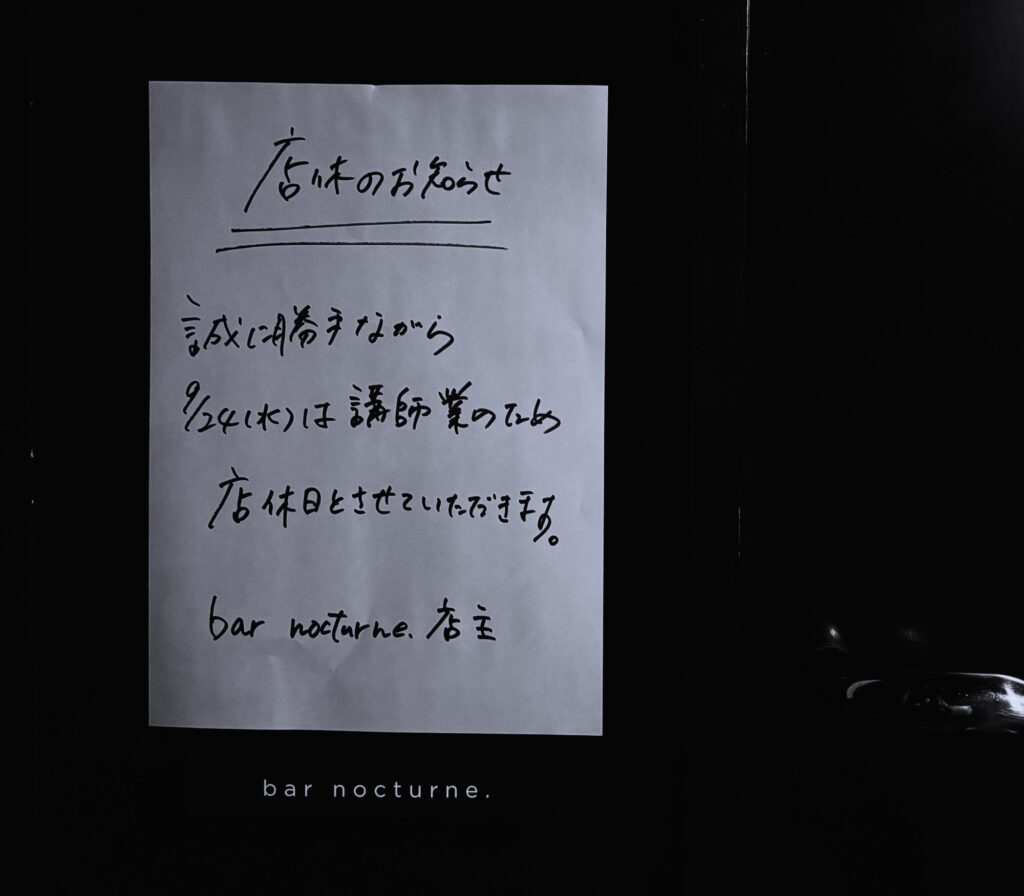 店休のお知らせ
誠に勝手ながら
9/24(水)は講師業のため
店休日とさせていただきます。
bar nocturne. 店主
bar nocturne.